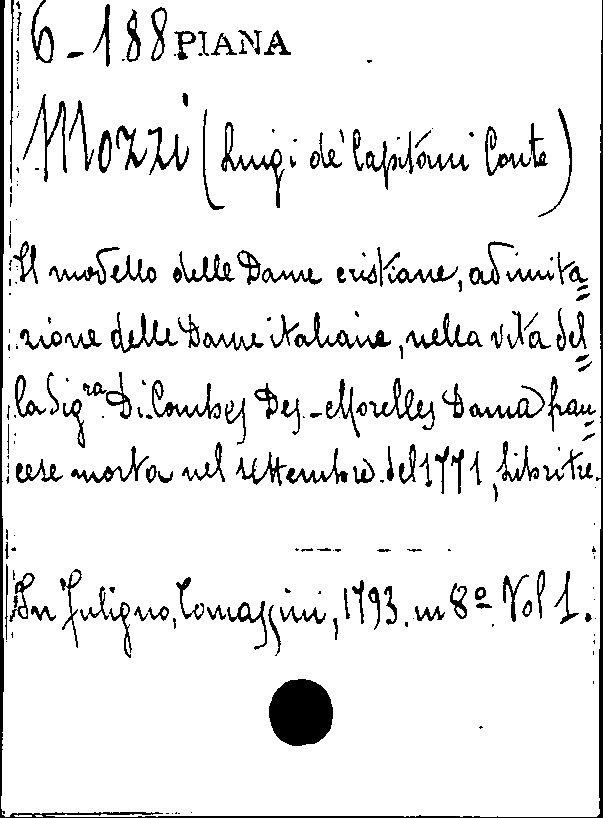 6-188 PIANA
Mozzi (Luigi de' Capitani Conte)
Il modello delle Dame cristiane, ad imita=
zione delle Dame italiane, nella vita del=
la Sig.ra Di Combes Des-Morelles Dama fran=
cese morta nel settembre del 1771, Libri tre.
In Fuligno, Tomassini, 1793. in 8º Vol 1.